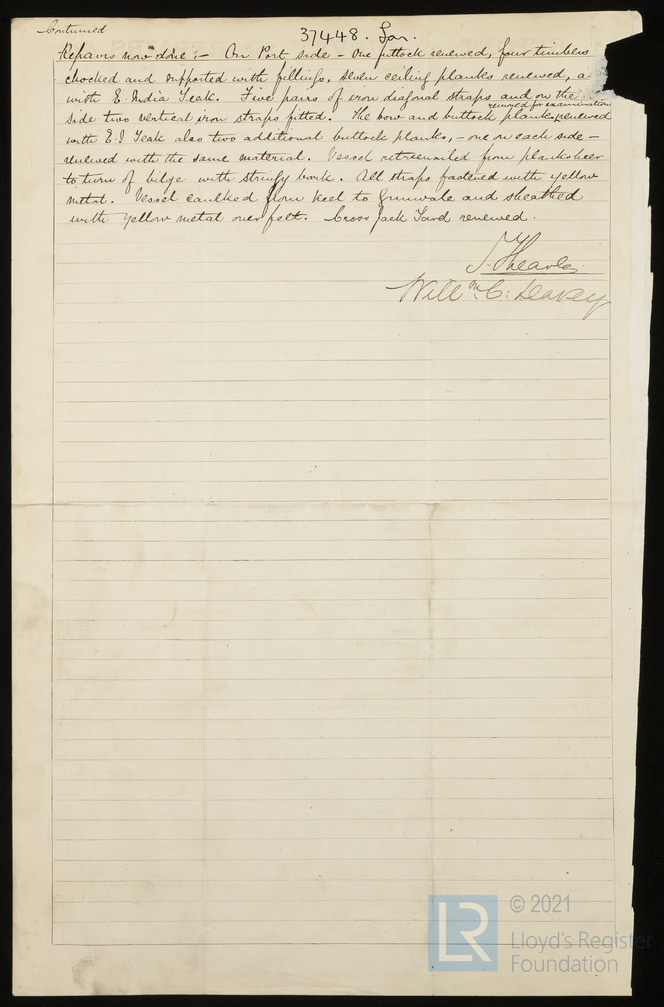 Continued
37448. Lon.
Repairs now done :- On Port side - One futtock renewed, four timbers
chocked and supported with fillings, seven ceiling planks renewed, a
with E. India Teak. Five pairs of iron diagonal straps and on the
removed for examination
side two vertical iron straps fitted. The bow and buttock planks renewed
with E.I Teak also two additional buttock planks, - one on each side -
renewed with the same material. Vessel retreenailed from planksheer
to turn of bilge with stringy bark. All straps fastened with yellow
metal. Vessel caulked from keel to gunwale and sheathed
with yellow metal over felt. Cross Jack Yard renewed.
Will m. C: Deavey
LR
© 2021
Lloyd's Register
Foundation